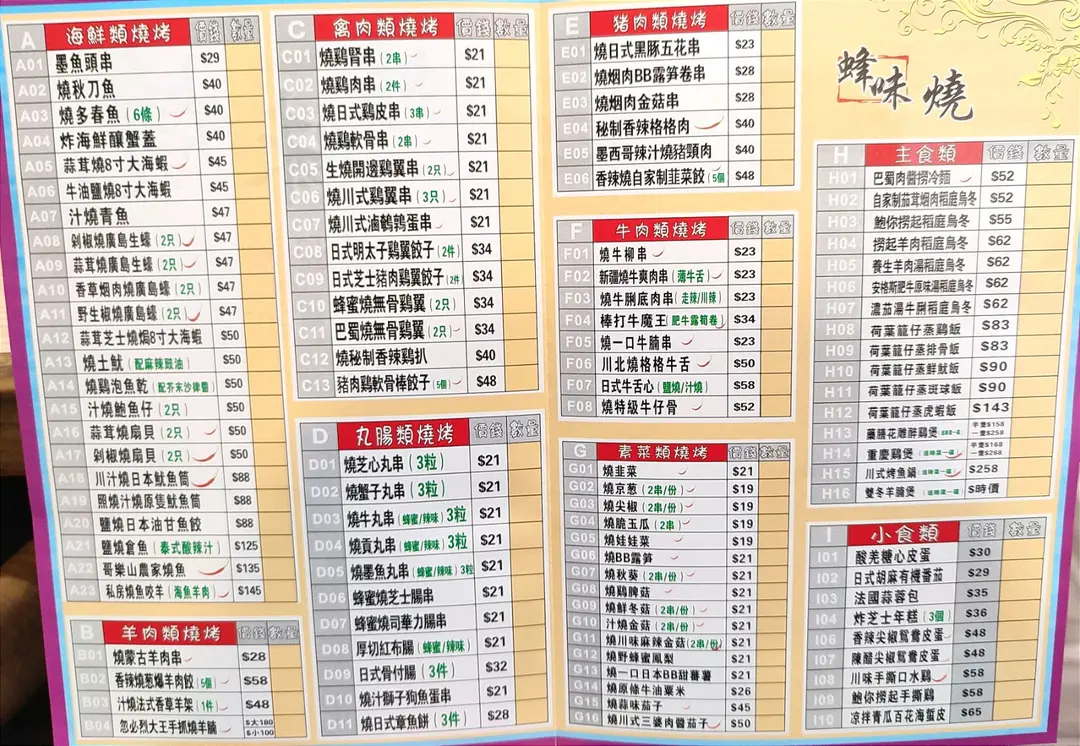 A 海鮮類燒烤 價錢 數量
A01 墨魚頭串 $29
A02 燒秋刀魚 $40
A03 燒多春魚(6條) $40
A04 炸海鮮釀蟹蓋 $40
A05 蒜茸燒8寸大海蝦 $45
A06 牛油鹽燒8寸大海蝦 $45
A07 汁燒青魚 $47
A08 剁椒燒廣島生蠔(2只) $47
A09 蒜茸燒廣島生蠔(2只) $47
A10 香草烟肉燒廣島生蠔(2只) $47
A11 野生椒燒廣島生蠔(2只) $47
A12 蒜茸芝士燒焗8寸大海蝦 $50
A13 燒土魷(配麻辣豉油) $50
A14 燒鷄泡魚乾(配芥末沙律醬) $50
A15 汁燒鮑魚仔(2只) $50
A16 蒜茸燒扇貝(2只) $50
A17 剁椒燒扇貝(2只) $50
A18 川汁燒日本魷魚筒 $88
A19 照燒汁燒原隻魷魚筒 $88
A20 鹽燒日本油甘魚鮫 $88
A21 鹽燒倉魚(泰式酸辣汁) $125
A22 哥樂山農家燒魚 $135
A23 私房燒魚咬羊(海魚羊肉) $145
B 羊肉類燒烤 價錢 數量
B01 燒蒙古羊肉串 $28
B02 香辣燒葱爆羊肉餃(5個) $58
B03 汁燒法式香草羊架(1件) $48
B04 忽必烈大王手抓燒羊腩 $大180 $小100
C 禽肉類燒烤 價錢 數量
C01 燒鷄腎串(2串) $21
C02 燒鷄肉串(2件) $21
C03 燒日式鷄皮串(3串) $21
C04 燒鷄軟骨串(2串) $21
C05 生燒開邊鷄翼串(2只) $21
C06 燒川式鷄翼串(3只) $21
C07 燒川式滷鵪鶉蛋串 $21
C08 日式明太子鷄翼餃子(2件) $34
C09 日式芝士豬肉鷄翼餃子(2件 $34
C10 蜂蜜燒無骨鷄翼(2只) $34
C11 巴蜀燒無骨鷄翼(2只) $34
C12 燒秘制香辣鷄扒 $40
C13 豬肉鷄軟骨棒餃子(5個) $48
D 丸腸類燒烤 價錢 數量
D01 燒芝心丸串(3粒) $21
D02 燒蟹子丸串(3粒) $21
D03 燒牛丸串(蜂蜜/辣味)3粒 $21
D04 燒貢丸串(蜂蜜/辣味)3粒 $21
D05 燒墨魚丸串(蜂蜜/辣味)3粒 $21
D06 蜂蜜燒芝士腸串 $21
D07 蜂蜜燒司華力腸串 $21
D08 厚切紅布腸(蜂蜜/辣味) $21
D09 日式骨付腸(3件) $32
D10 燒汁獅子狗魚蛋串 $21
D11 燒日式章魚餅(3件) $28
E 猪肉類燒烤 價錢 數量
E01 燒日式黑豚五花串 $23
E02 燒烟肉BB露笋卷串 $28
E03 燒烟肉金菇串 $28
E04 秘制香辣格格肉 $40
E05 墨西哥辣汁燒豬頸肉 $40
E06 香辣燒自家制韮菜餃(5個 $48
F 牛肉類燒烤 價錢 數量
F01 燒牛柳串 $23
F02 新疆燒牛爽肉串(薄牛舌) $23
F03 燒牛脷底肉串(走辣/川辣) $23
F04 棒打牛魔王(肥牛露荀卷) $34
F05 燒一口牛腩串 $23
F06 川北燒格格牛舌 $50
F07 日式牛舌心(鹽燒/汁燒) $58
F08 燒特級牛仔骨 $52
G 素菜類燒烤 價錢 數量
G01 燒韭菜 $21
G02 燒京葱(2串/份) $19
G03 燒尖椒(2串/份) $19
G04 燒脆玉瓜(2串) $19
G05 燒娃娃菜 $19
G06 燒BB露笋 $21
G07 燒秋葵(2串/份) $21
G08 燒鷄脾菇 $21
G09 燒鮮冬菇(2串/份) $21
G10 汁燒金菇(2串/份) $21
G11 燒川味麻辣金菇(2串/份) $21
G12 燒野蜂蜜鳳梨 $21
G13 燒一口日本BB甜蕃薯 $21
G14 燒原條牛油粟米 $26
G15 燒蒜味茄子 $45
G16 燒川式三婆肉醬茄子 $50
蜂味燒
H 主食類 價錢 數量
H01 巴蜀肉醬撈冷麵 $52
H02 自家制茄茸烟肉稻庭烏冬 $52
H03 鮑你撈起稻庭烏冬 $55
H04 撈起羊肉稻庭烏冬 $62
H05 養生羊肉湯稻庭烏冬 $62
H06 安格斯肥牛原味湯稻庭烏冬 $62
H07 濃茄湯牛脷稻庭烏冬 $62
H08 荷葉籠仔蒸鷄飯 $83
H09 荷葉籠仔蒸排骨飯 $83
H10 荷葉籠仔蒸鮮魷飯 $90
H11 荷葉籠仔蒸斑球飯 $90
H12 荷葉籠仔蒸虎蝦飯 $143
H13 藥膳花雕醉鷄煲 半隻$158 一隻$258
H14 重慶鷄煲(送時菜一碟) 半隻$168 一隻$268
H15 川式烤魚鍋(送時菜一碟) $258
H16 雙冬羊腩煲(送時菜一碟) $時價
I 小食類 價錢 數量
I01 酸羌糖心皮蛋 $30
I02 日式胡麻有機番茄 $29
I03 法國蒜蓉包 $35
I04 炸芝士年糕(3個) $36
I06 香辣尖椒鴛鴦皮蛋 $48
I07 陳醋尖椒鴛鴦皮蛋 $48
I08 川味手撕口水鷄 $58
I09 鮑你撈起手撕鷄 $58
I10 凉拌青瓜百花海蜇皮 $65